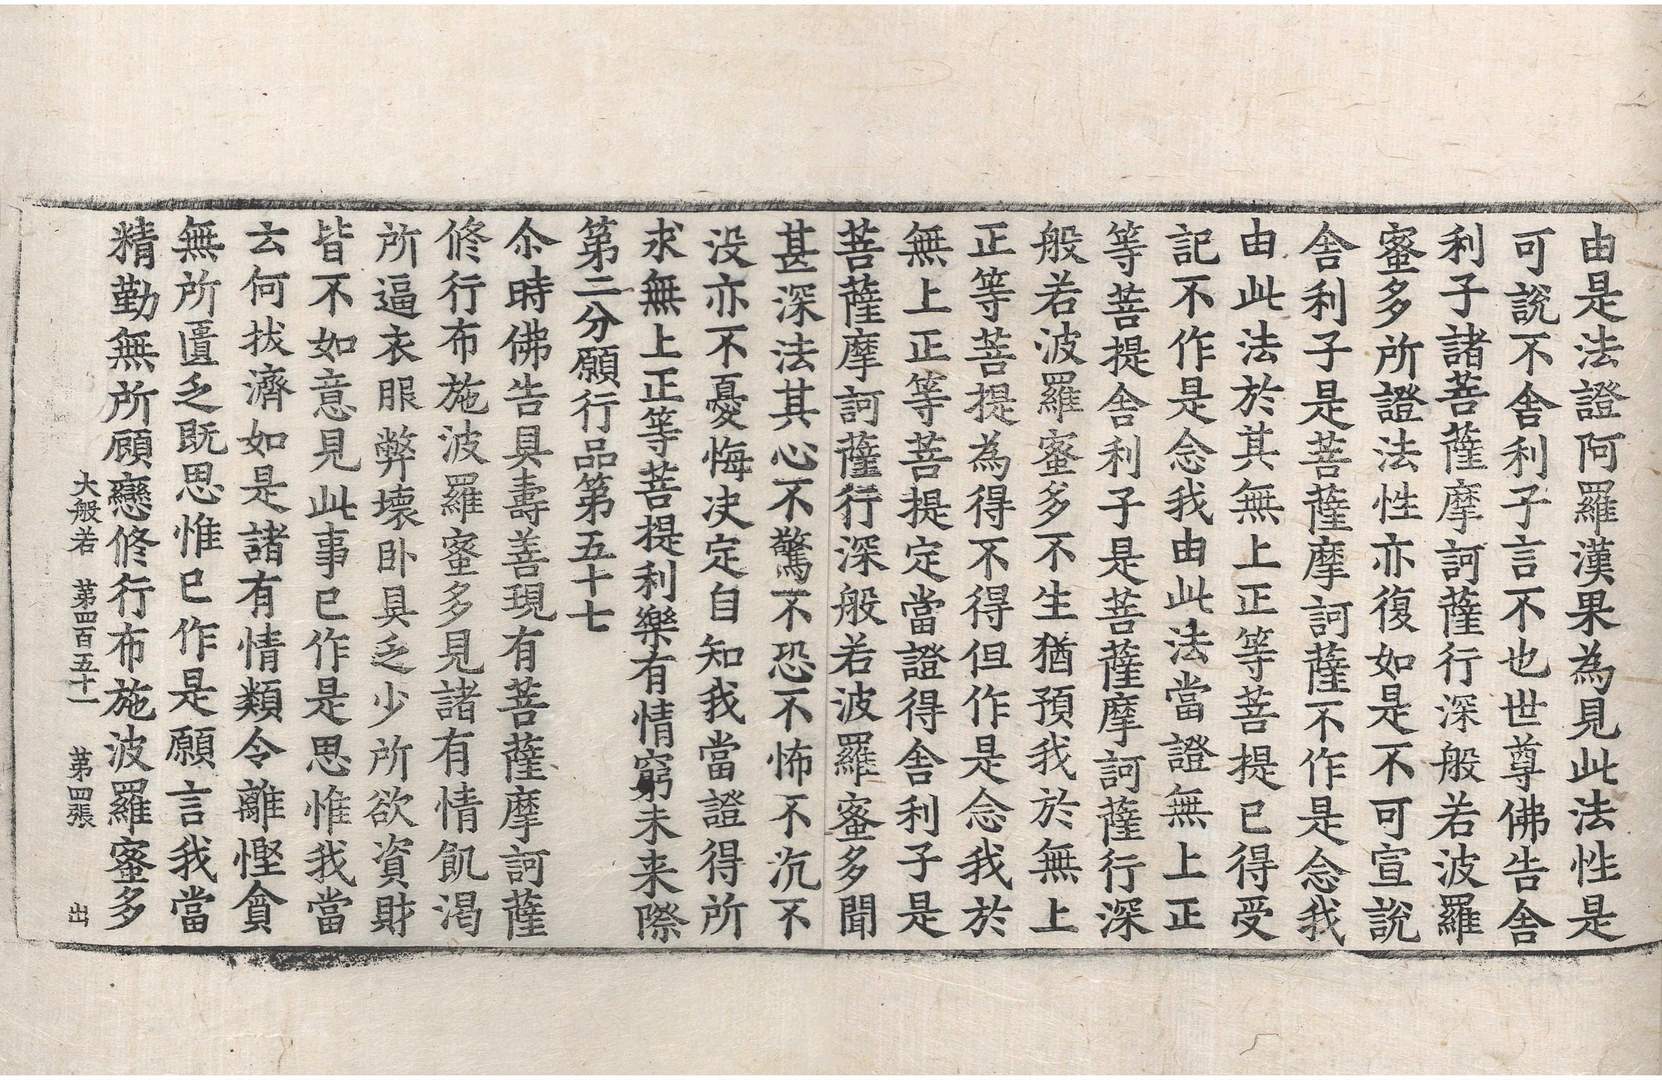 由是法證阿羅漢果為見此法性是
可說不舍利子言不也世尊佛告舍
利子諸菩薩摩訶薩行深般若波羅
蜜多所證法性亦復如是不可宣說
舍利子是菩薩摩訶薩不作是念我
由此法於其無上正等菩提已得受
記不作是念我由此法當證無上正
等菩提舍利子是菩薩摩訶薩行深
般若波羅蜜多不生猶預我於無上
正等菩提為得不得但作是念我於
無上正等菩提定當證得舍利子是
菩薩摩訶薩行深般若波羅蜜多聞
甚深法其心不驚不恐不怖不沉不
没亦不憂悔决定自知我當證得所
求無上正等菩提利樂有情窮未来際
第二分願行品第五十七
尒時佛告具壽善現有菩薩摩訶薩
俢行布施波羅蜜多見諸有情飢渴
所逼衣服弊壞卧具乏少所欲資財
皆不如意見此事已作是思惟我當
云何拔濟如是諸有情類令離慳貪
無所匱乏既思惟已作是願言我當
精勤無所顧戀俢行布施波羅蜜多
大般若 第四百五十一 第四張 出